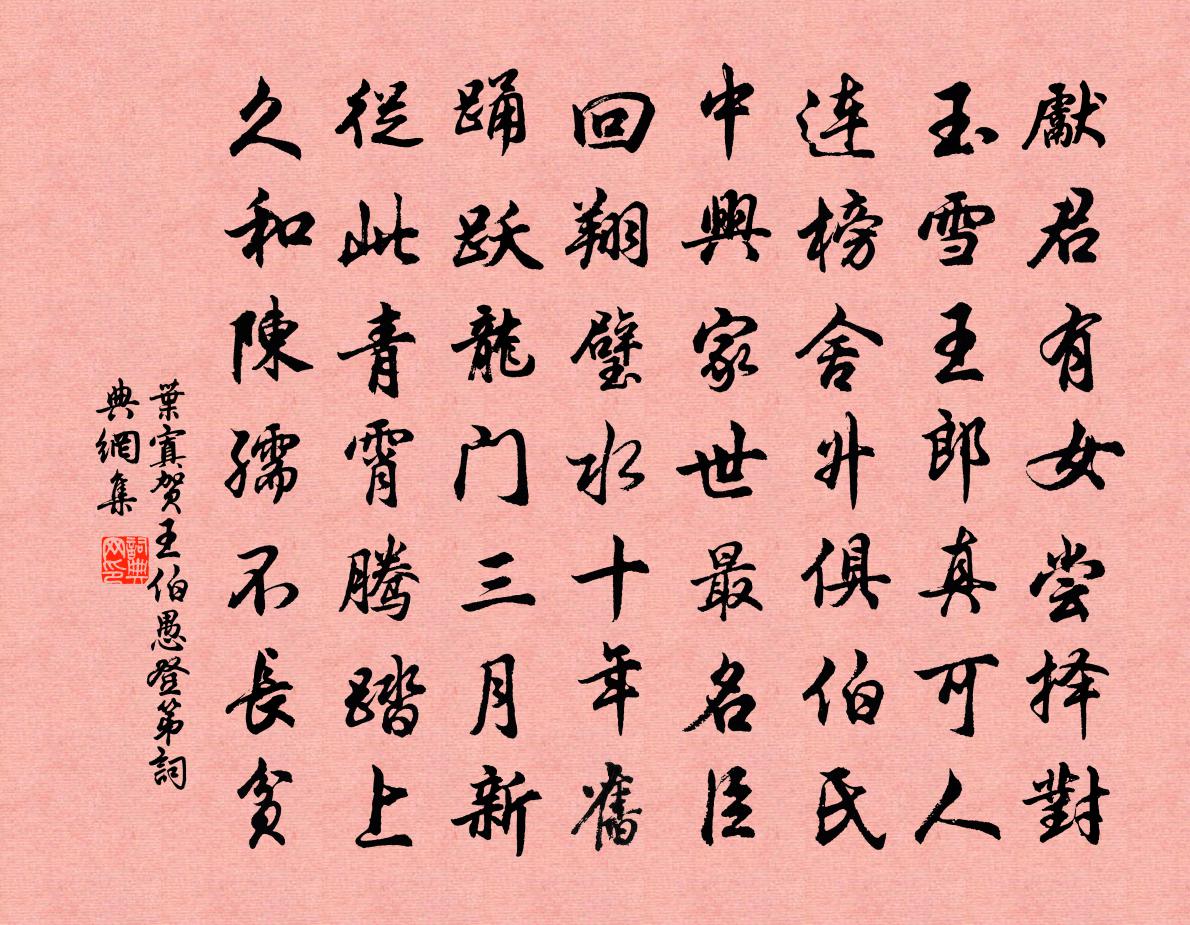 獻君有女尝择對
玉雪王郎真可人
连榜舍升俱伯氏
中興家世最名臣
回翔璧水十年舊
踊跃龍门三月新
從此青霄騰踏上
久和陳孺不長貧
葉寘贺王伯愚登第詞
典網集
詞典
网印